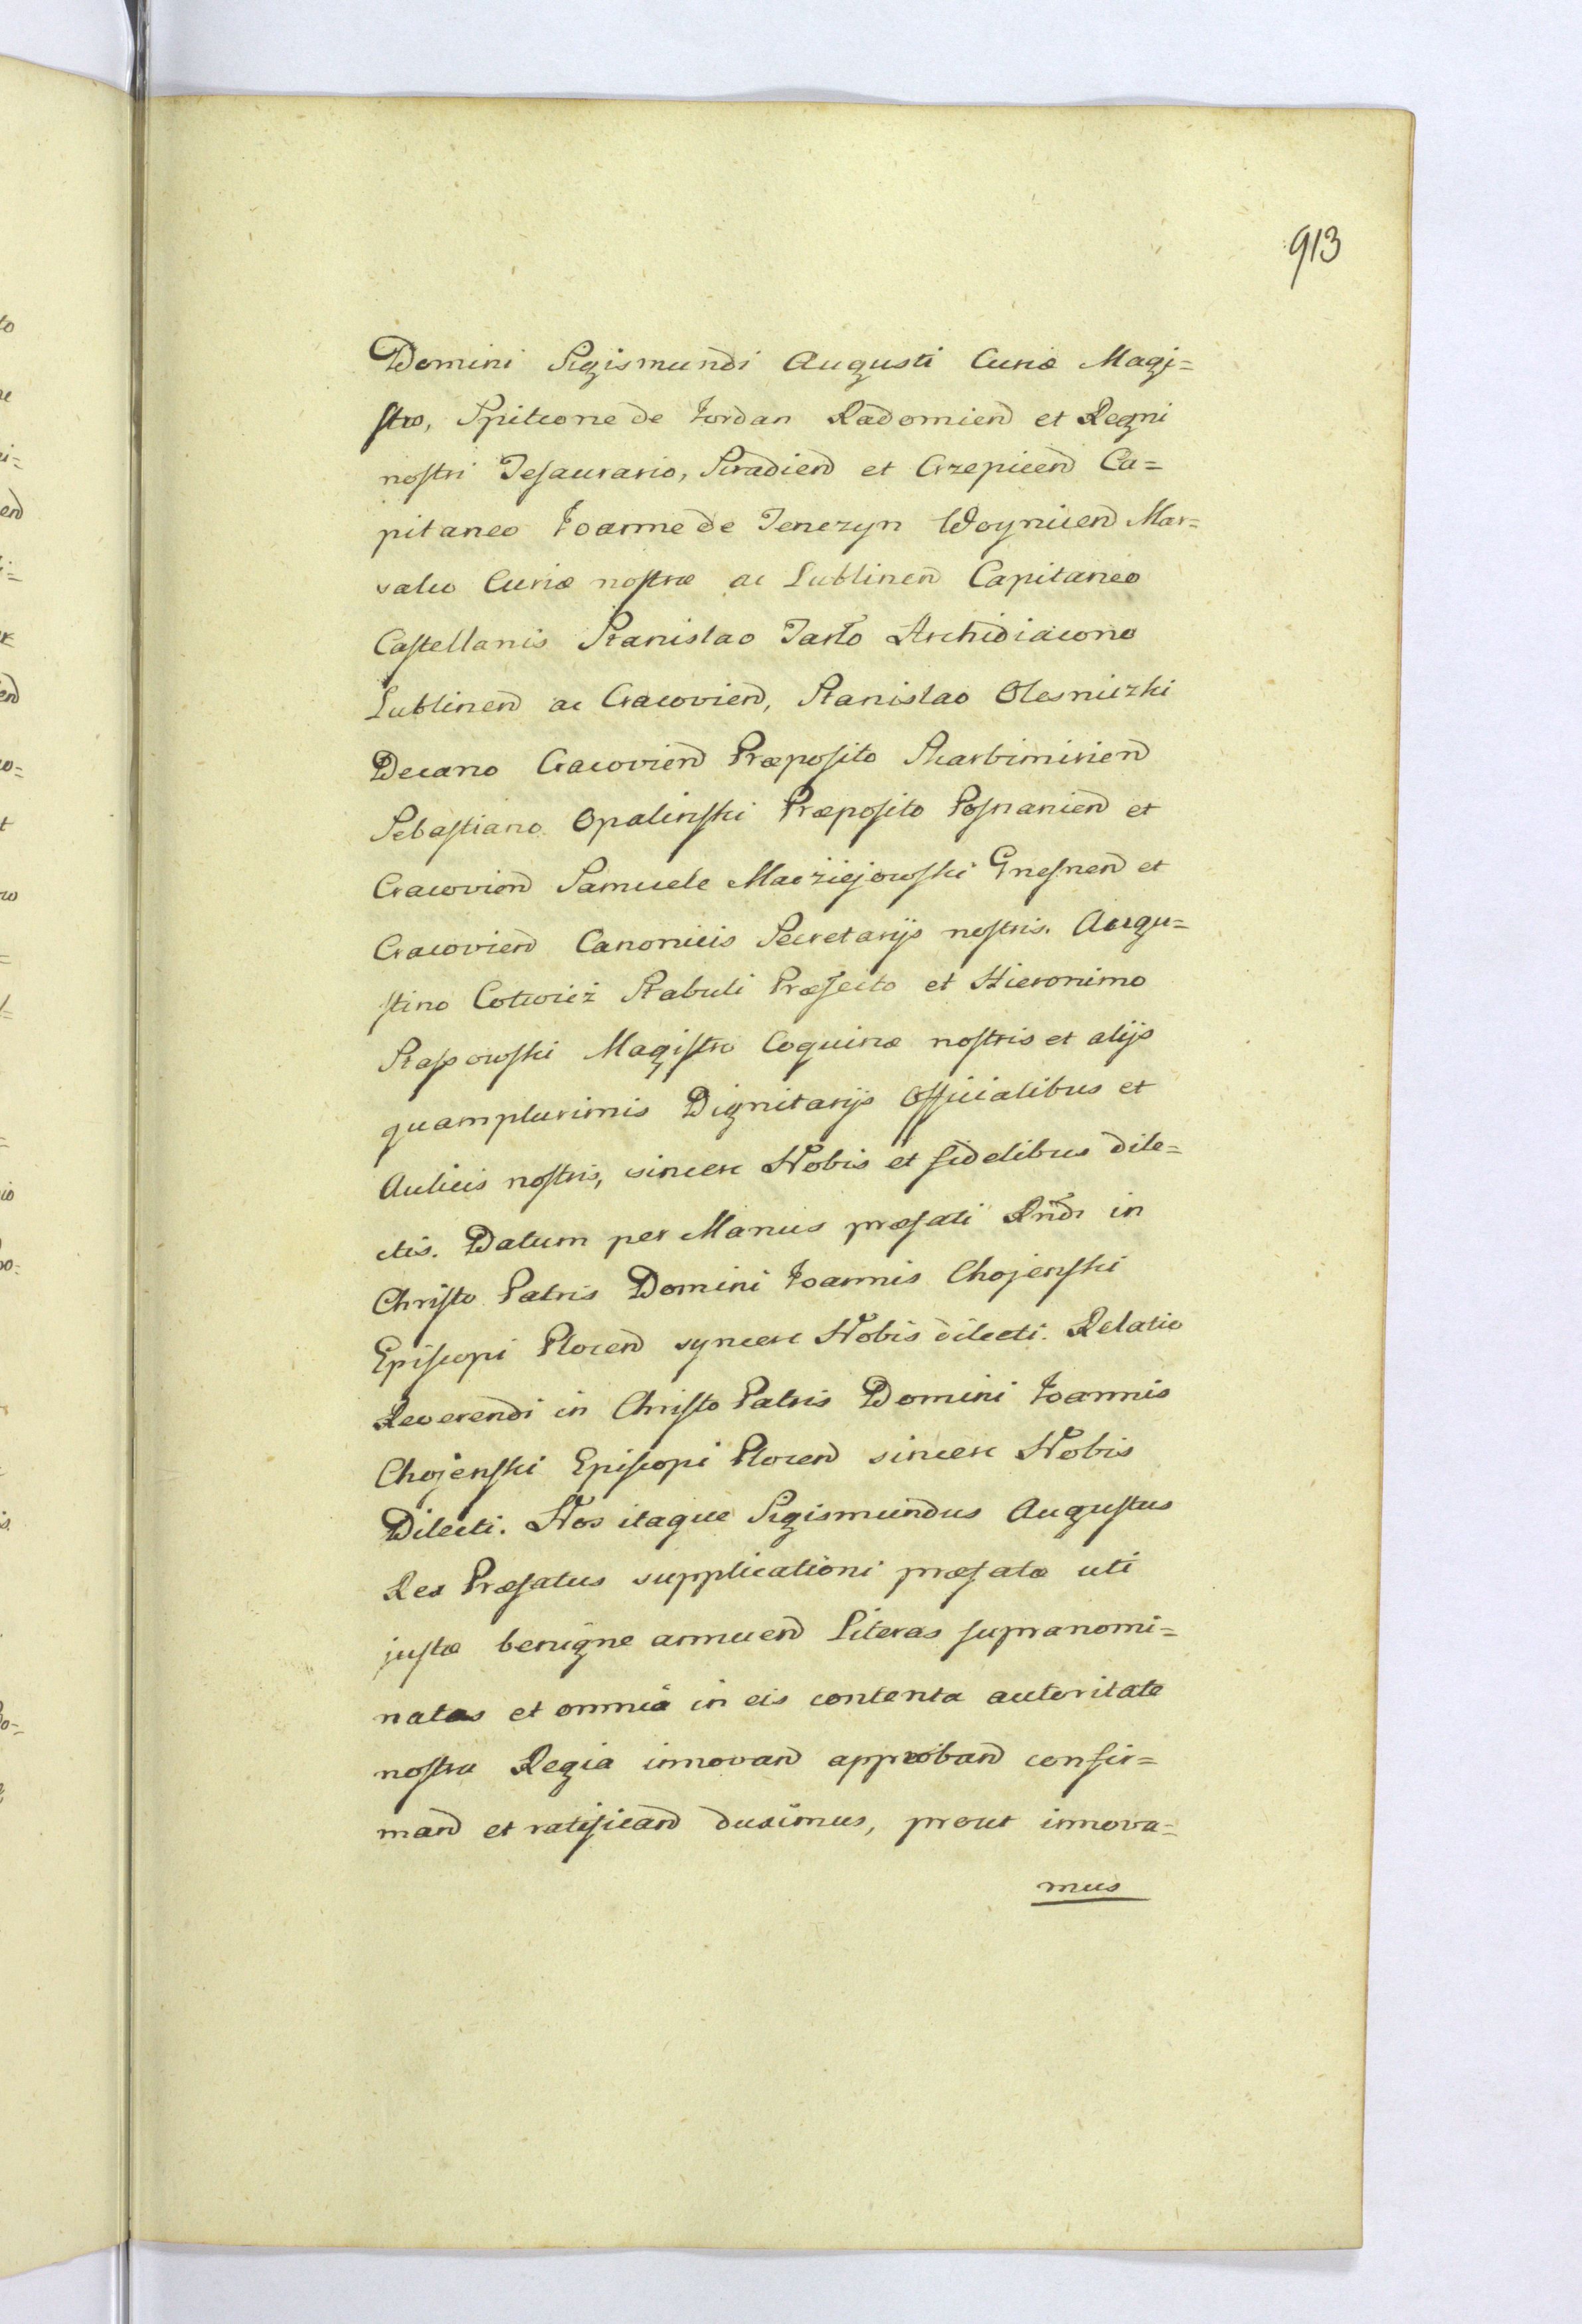 913
Domini Sigismundi Augusti Curiæ Magi=
stro, Spitcone de Jordan Radomien̄ et Regni
nostri Tesaurario, Siradien̄ et Crzepicen̄ Ca=
pitaneo Joanne de Tenczyn Woynicen̄ Mar=
salco Curiæ nostræ ac Lublinen̄ Capitaneo
Castellanis Stanislao Tarło Archidiacono
Lublinen̄ ac Cracovien̄, Stanislao Olesniczki
Decano Cracovien̄ Præposito Skarbimirien̄
Sebastiano Opalinski Præposito Posnanien̄ et
Cracovien̄ Samuele Maciiejowski Gnesnen̄ et
Cracovien̄ Canonicis Secretarijs nostris. Augu=
stino Cotwicż Stabuli Præfecto et Hieronimo
Stassowski Magistro Coquinæ nostris et alijs
quamplurimis Dignitarijs Officialibus et
Aulicis nostris, sincere Nobis et fidelibus dile=
ctis. Datum per Manus præfati Rn̄di in
Christo Patris Domini Joannis Chojenski
Episcopi Plocen̄ syncere Nobis dilecti. Relatio
Reverendi in Christo Patris Domini Joannis
Chojenski Episcopi Plocen̄ sincere Nobis
Dilecti. Nos itaque Sigismundus Augustus
Rex Præfatus supplicationi præfatæ uti
justæ benigne annuen̄ Literas supranomi=
natas et omnia in eis contenta autoritate
nostra Regia innovan̄ approban̄ confir=
man̄ et ratifican̄ duximus, prout innova=
mus